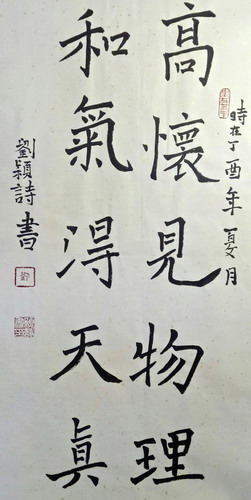 時在丁酉年夏月
高懷見物理
和氣得天真
劉穎詩書